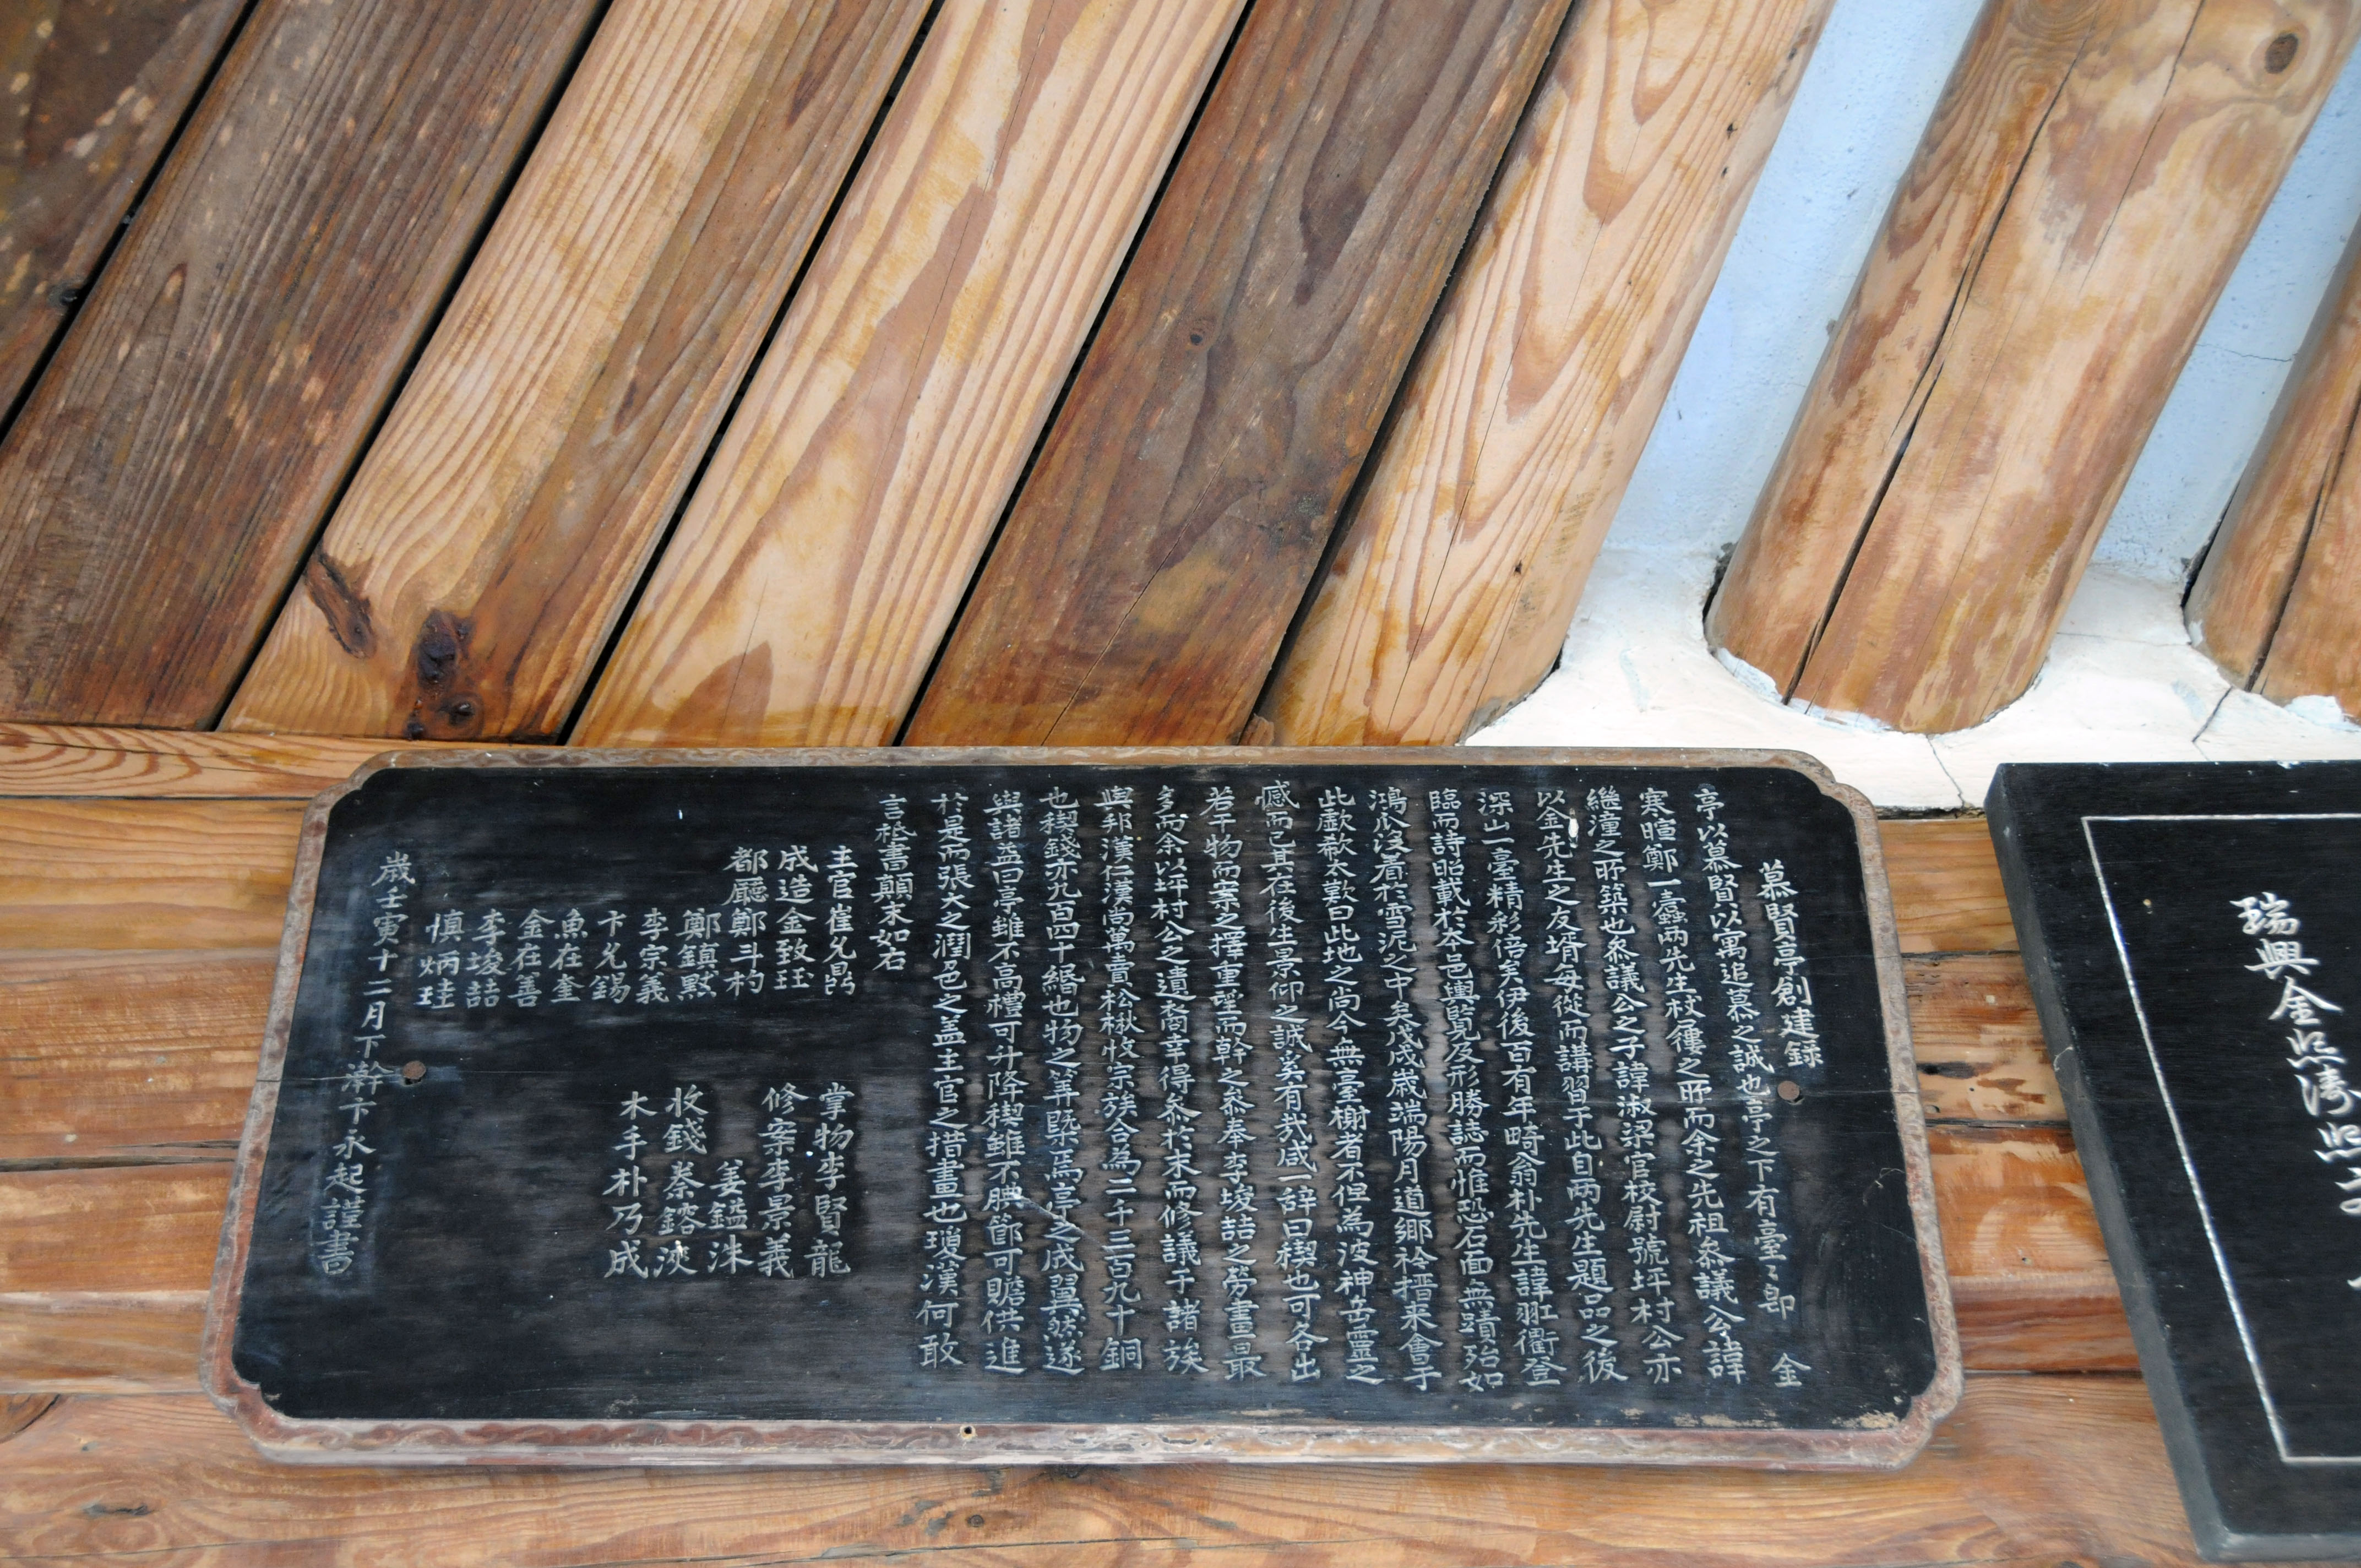 慕賢亭創建錄
亭以慕賢以寓追慕之誠也亭之下有臺々卽 金
寒暄鄭一蠹兩先生杖屨之所而余之先祖叅議公諱
繼潼之所築也叅議公之子諱淑梁官校尉號坪村公亦
以金先生之友壻每從而講習于此自兩先生題品之後
深山一臺精彩倍矣伊後百有年畸翁朴先生諱羾衢登
臨而詩昭載於本邑輿覽及形勝誌而惟恐石面無蹟殆如
鴻爪沒着於雪泥之中矣戊戌歲端陽月道鄕衿搢来會于
此歔欷太歎曰此地之尙今無臺榭者不但為波神岳靈之
憾而已其在後生景仰之誠奚有哉咸一辞曰稧也可各出
若干物而案之擇重望而幹之叅奉李埈喆之勞畫最
多而余以坪村公之遺裔幸得叅於末而修議于諸族
與邦漢仁漢尚萬賣松楸收宗族合為二千三百九十銅
也稧錢亦九百四十緡也物之筭槩焉亭之成翼然遂
與諸益曰亭雖不高禮可升降稧雖不腆節可贍供進
於是而張大之潤色之盖主官之措畫也瓊漢何敢
言秪書顚末如右
主官崔允昺 掌物李賢龍
成造金致珏 修案李景義
都廳鄭斗杓 姜鎰洙
鄭鎮黙 收錢叅鎔浹
李宗義 木手朴乃成
卞允錫
魚在奎
金在善
李埈喆
愼炳珪
歲壬寅十二月下澣卞永起謹書
瑞興金熙濤熙